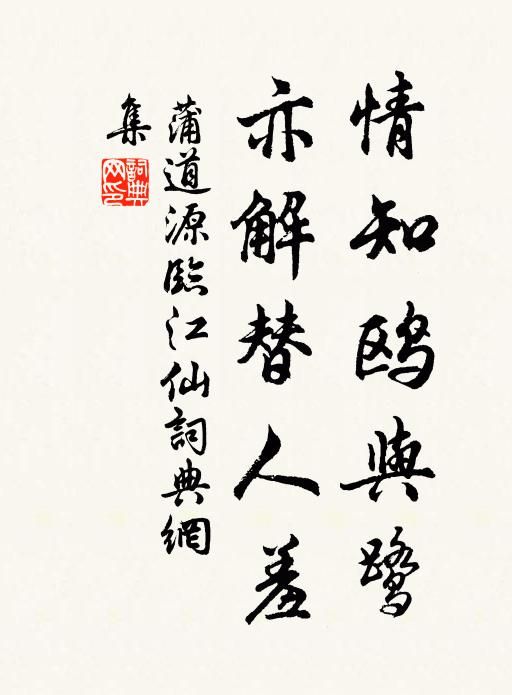 情知鸥與鹭
亦解替人羞
蒲道源臨江仙詞典網
集
詞典网印